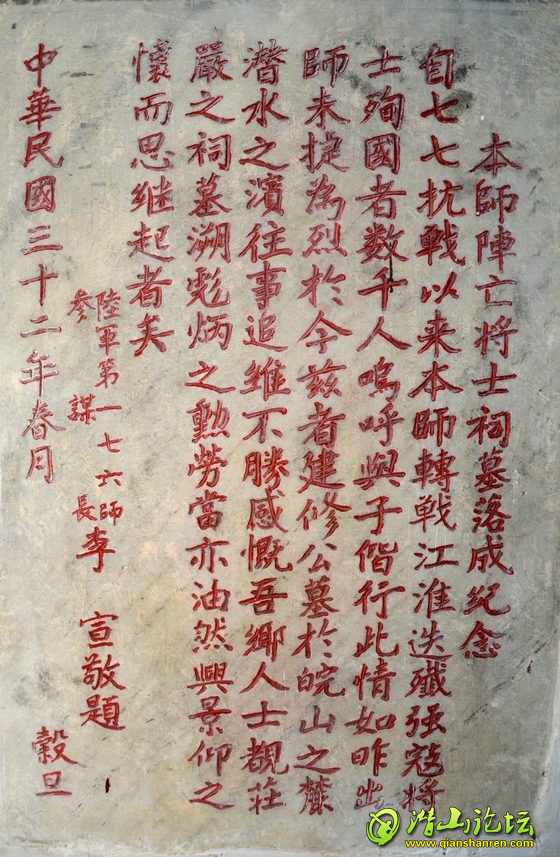 本師陣亡将士祠墓落成纪念
自七七抗戰以来本師轉戰江淮迭殲强寇将
士殉國者数千人嗚呼與子偕行此情如昨出
師未捷為烈於今兹者建修公墓於皖山之麓
潜水之濱往事追維不勝感慨吾鄉人士覩莊
嚴之祠墓溯彪炳之勳勞當亦油然興景仰之
懷而思继起者矣
陸軍第一七六師
參謀長李宣敬題
中華民國三十二年春月 穀旦
潜山论坛
www.qianshanren.com